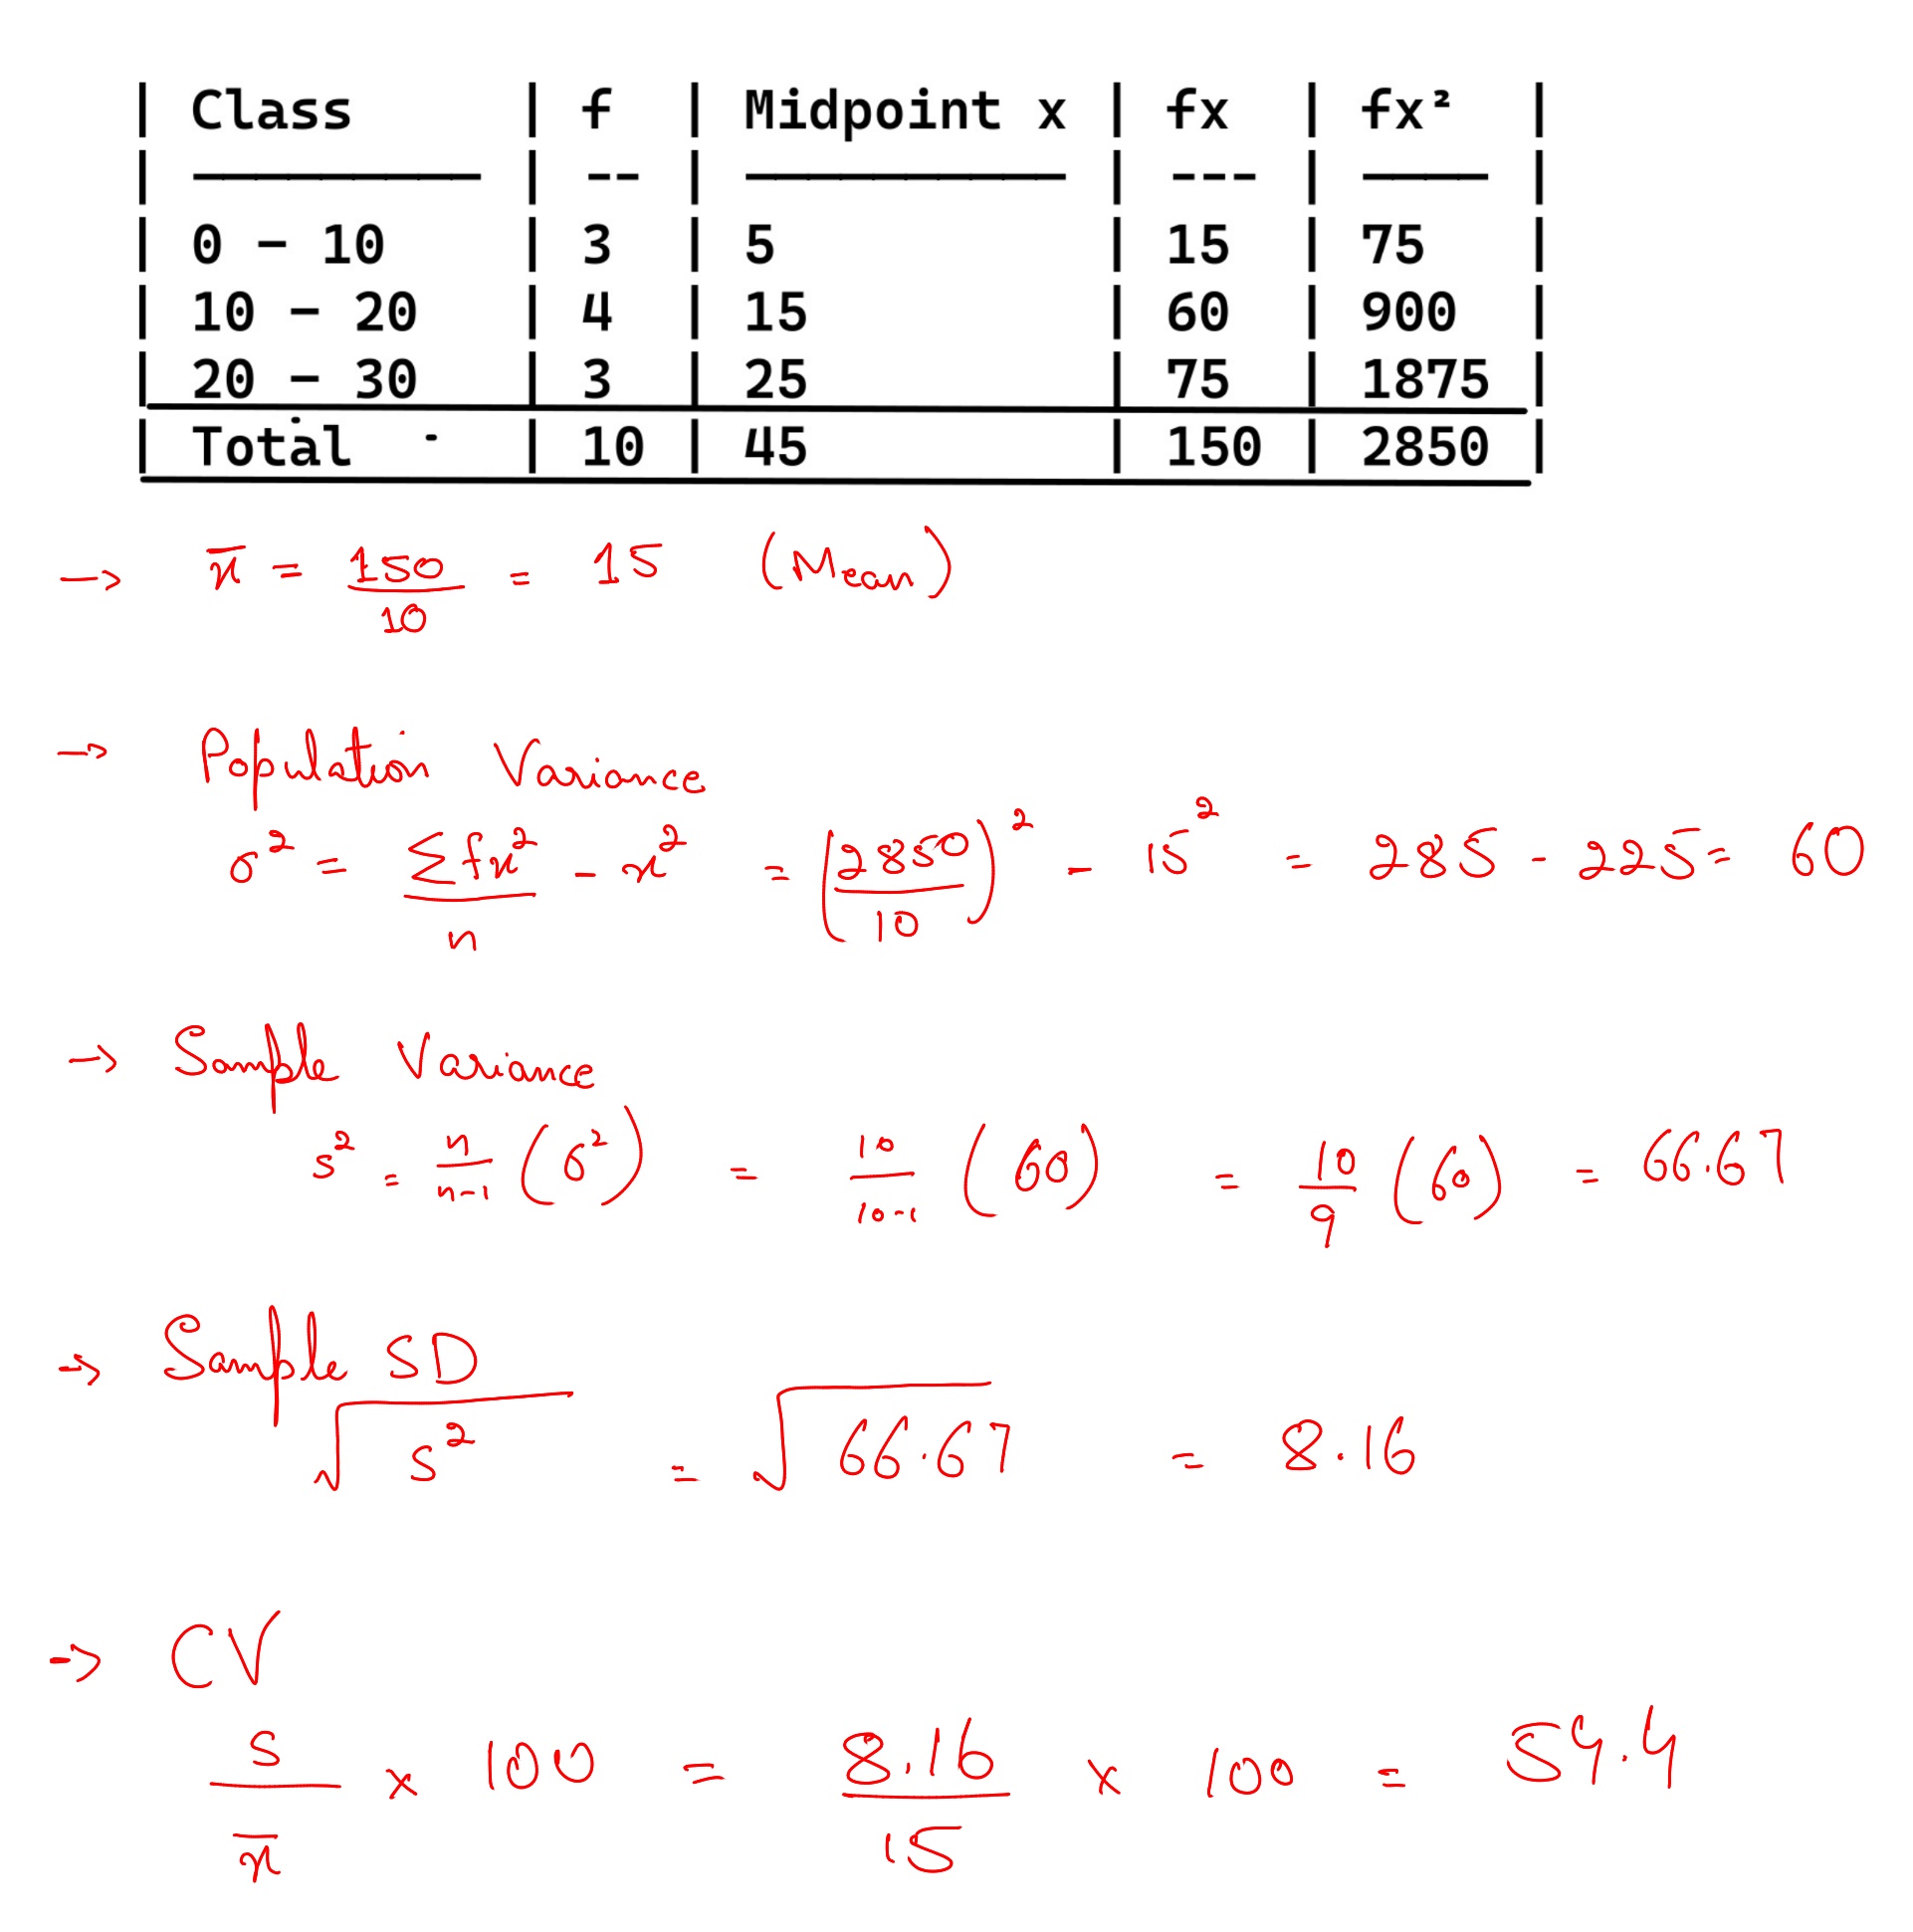 | Class | f | Midpoint x | fx | fx² |
| ───────── | -- | ────────── | --- | ──── |
| 0 – 10 | 3 | 5 | 15 | 75 |
| 10 – 20 | 4 | 15 | 60 | 900 |
| 20 – 30 | 3 | 25 | 75 | 1875 |
| Total | 10 | 45 | 150 | 2850 |
→ x̄ = 150/10 = 15 (Mean)
→ Population Variance
σ² = Σfx²/n - x² = (2850/10)² - 15² = 285 - 225 = 60
→ Sample Variance
s² = n/n-1 (σ²) = 10/10-1 (60) = 10/9 (60) = 66.67
→ Sample SD
√s² = √66.67 = 8.16
→ CV
s/x̄ × 100 = 8.16/15 × 100 = 54.4